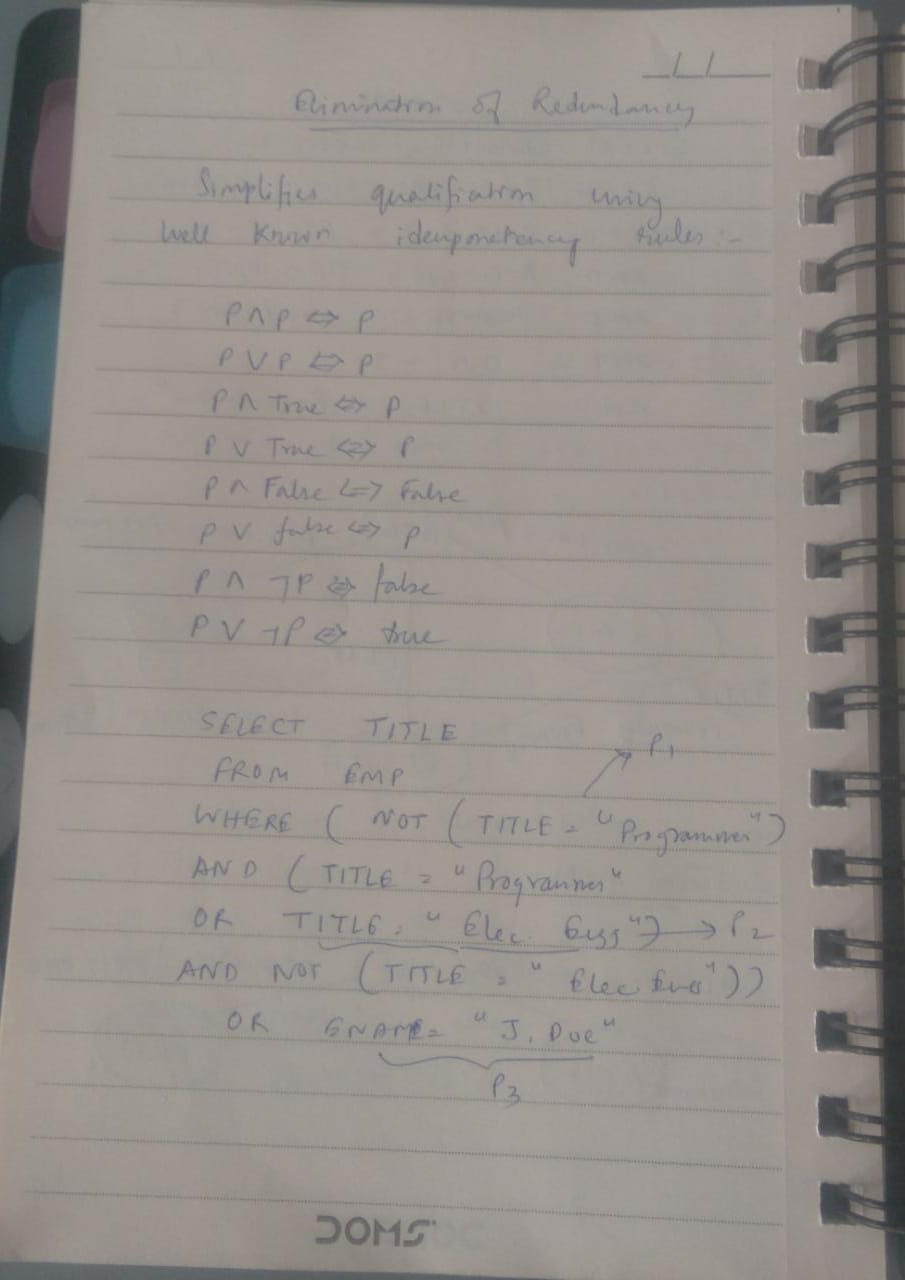 _/_/___
Elimination of Redundancy
Simplifies qualifiation using
Well Known idenponetency rules:-
P ∧ P ⇔ P
P ∨ P ⇔ P
P ∧ True ⇔ P
P ∨ True ⇔ P
P ∧ False ⇔ False
P ∨ false ⇔ P
P ∧ ¬P ⇔ false
P ∨ ¬P ⇔ true
SELECT TITLE
FROM EMP → P1
WHERE ( NOT ( TITLE = "Programmer")
AND ( TITLE = "Programmer"
OR TITLE = "Elec. Engg") → P2
AND NOT (TITLE = "Elec Eng"))
OR ENAME = "J. Doe"
P3
DOMS